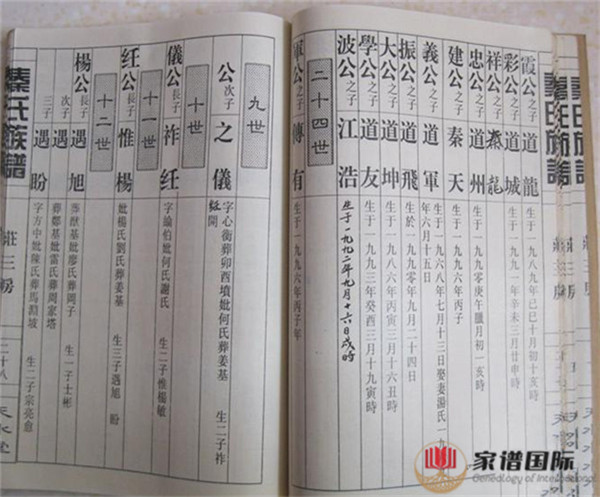 霞公之子 道龍 生于一九八九年己巳十月初十亥時
彩公之子 道城 生于一九九一年辛未三月廿申時
祥公之子
忠公之子 道州 生于一九九零庚午臘月初一亥時
建公之子 秦天 生于一九九六年丙子
義公之子 道軍 生于一九六八年七月十三日娶妻湯氏一九
年六月十五日
振公之子 道飛 生於一九九零年九月二十四日
大公之子 道坤 生于一九八六年丙寅三月十六丑時
學公之子 道友 生于一九九三年癸酉三月十九寅時
波公之子 江浩 生于一九九二年九月十六日戌時
二十四世
軍公之子 傳有 生于一九九六年丙子年
九世
公次子 之儀 字心衡葬卯酉墳妣何氏葬姜基 生二子祚
紅開
十世
儀公長子 祚紅 字諭伯妣何氏謝氏 生二子惟楊敏
十一世
紅公長子 惟楊 妣楊氏劉氏葬姜基 生三子遇旭 盼
十二世
楊公長子 遇旭 葬猷基妣廖氏葬周子 生一子士彬
次子 遇 葬鄒基妣雷氏葬周家塔
三子 遇盼 字方中妣陳氏葬馬 坡 生二子宗亮血
秦氏族譜
莊三房
二十八
天水堂
家谱国际
Genealogy of International